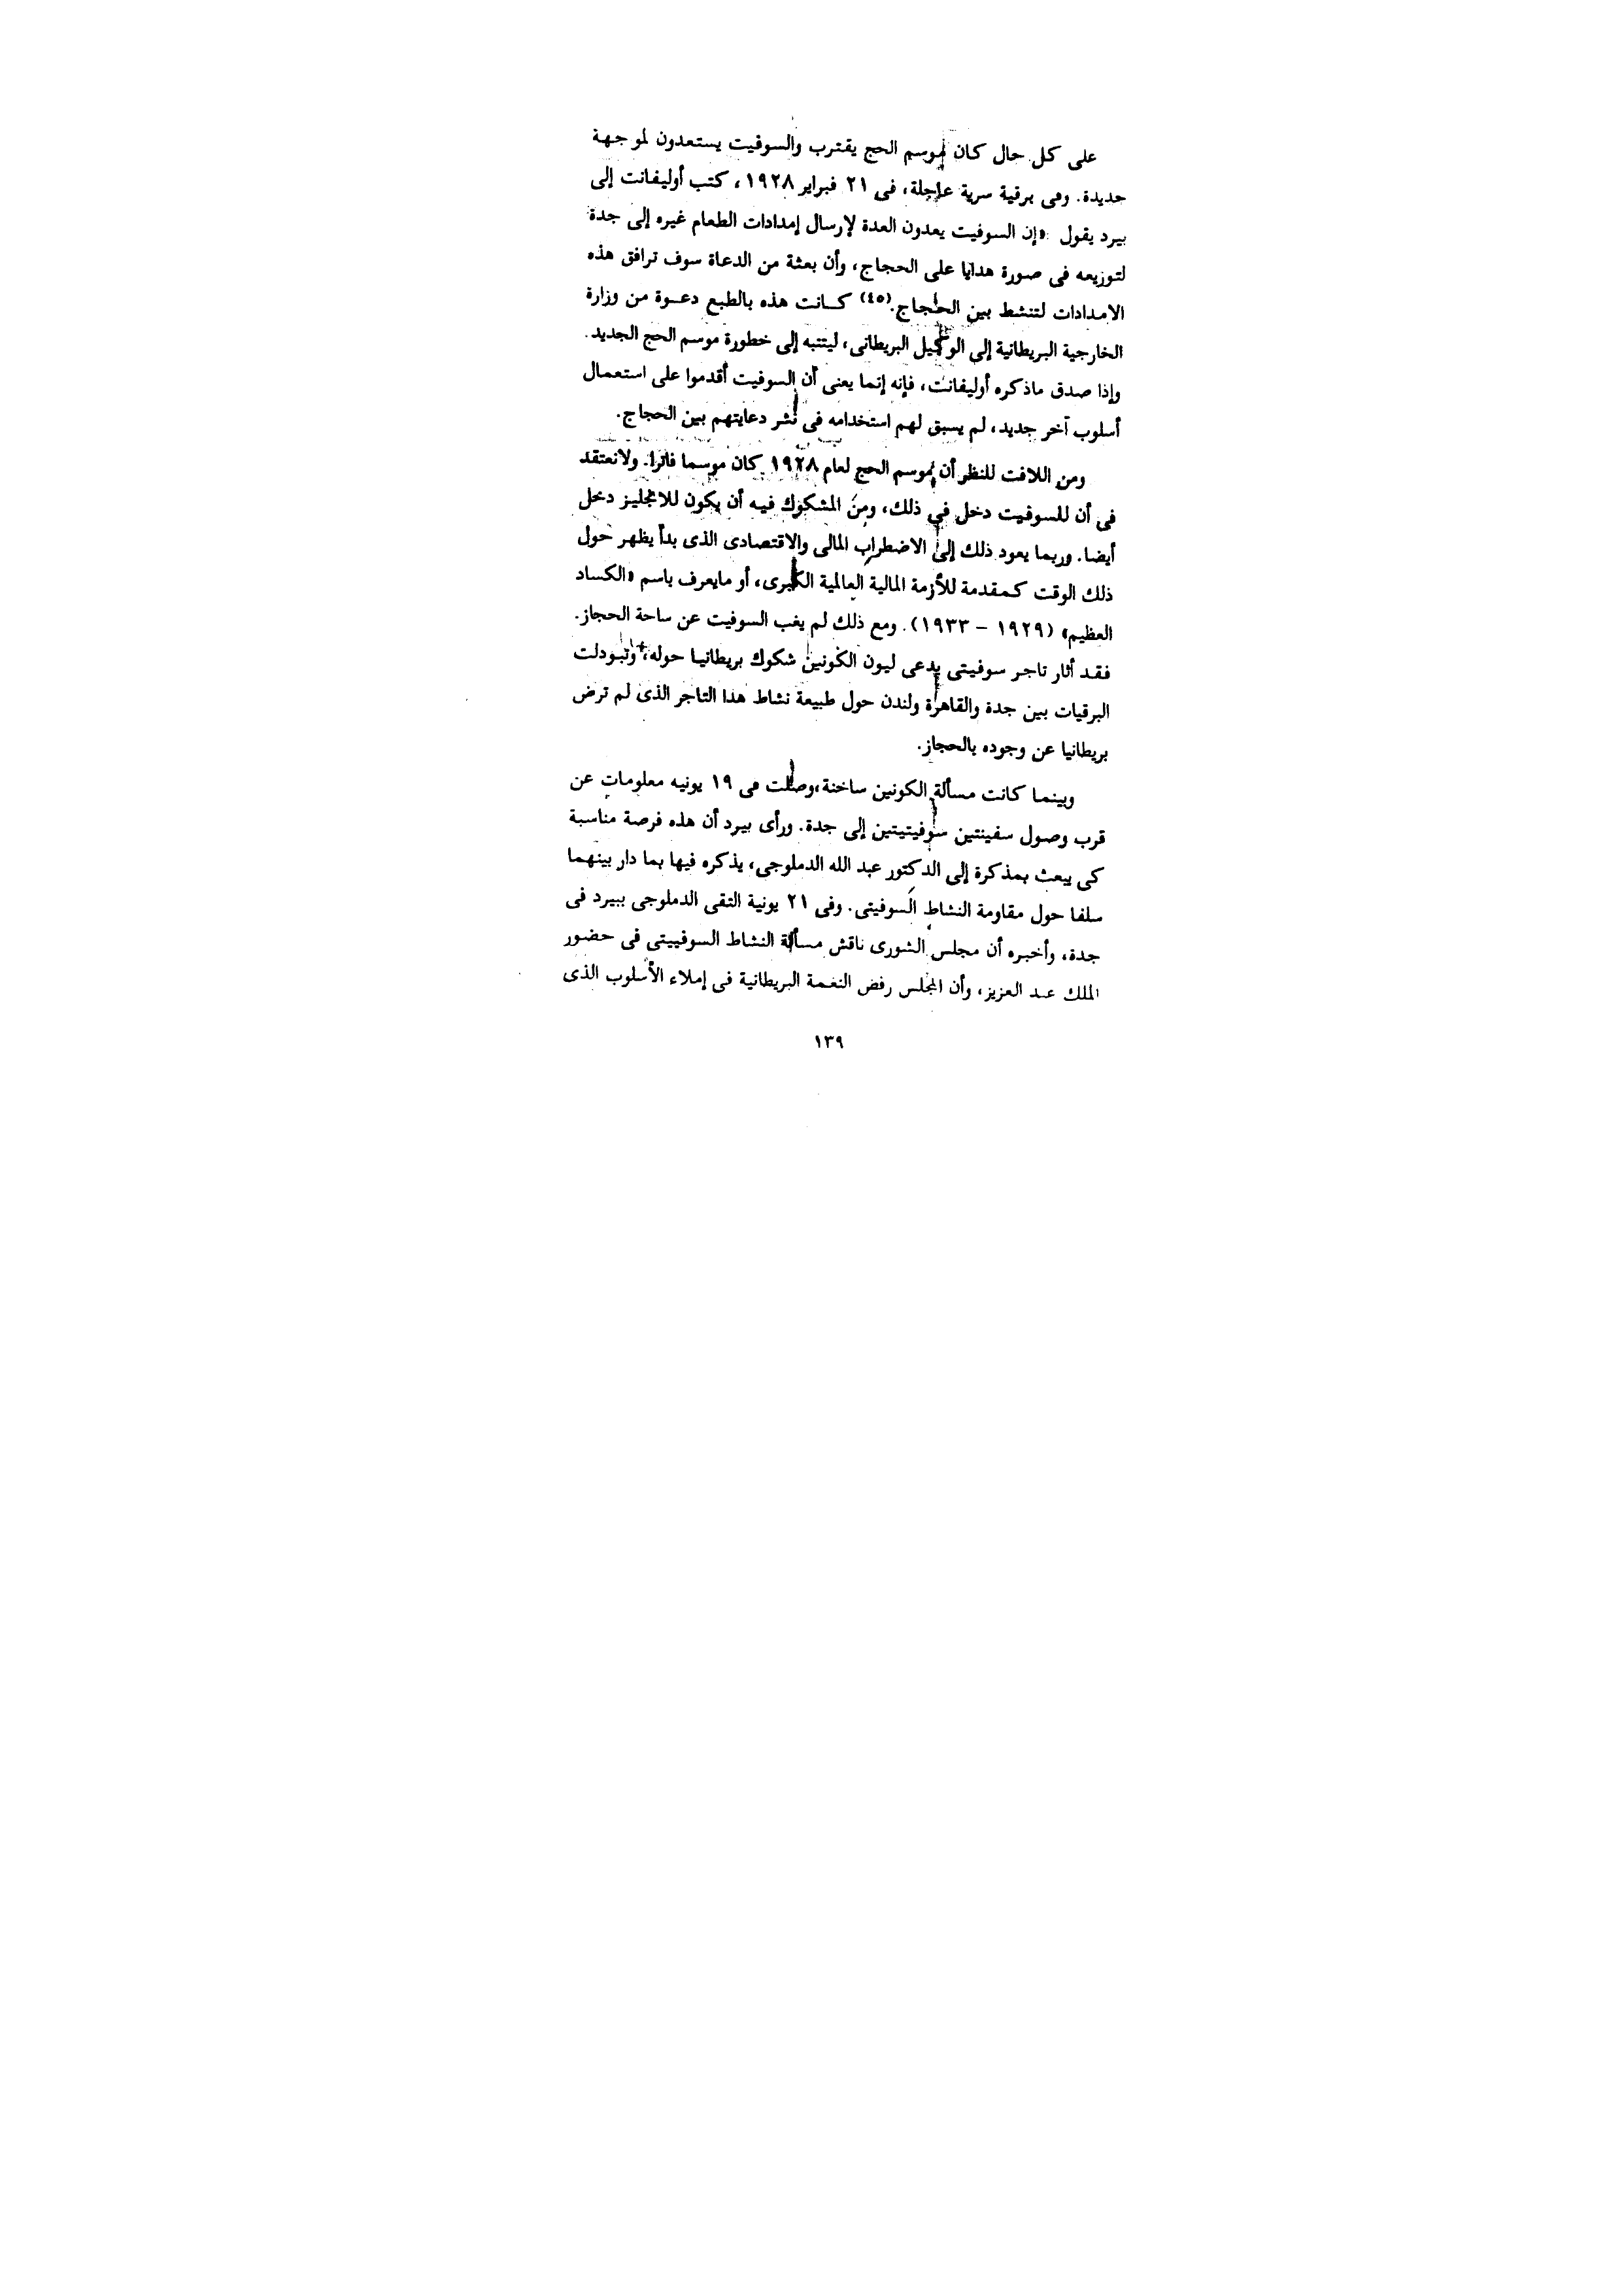 على كل حال كان موسم الحج يقترب والسوفيت يستعدون لموجهة
جديدة. وفى برقية سرية عاجلة، فى ٢١ فبراير ١٩٢٨، كتب أوليفانت إلى
بيرد يقول «إن السوفيت يعدون العدة لإرسال إمدادات الطعام غيره إلى جدة
لتوزيعه فى صورة هدايا على الحجاج، وأن بعثة من الدعاة سوف ترافق هذه
الامدادات لتنشط بين الحجاج.(٤٥) كانت هذه بالطبع دعوة من وزارة
الخارجية البريطانية إلى الوكيل البريطانى، ليتنبه إلى خطورة موسم الحج الجديد.
وإذا صدق ماذكره أوليفانت، فإنه إنما يعنى أن السوفيت أقدموا على استعمال
أسلوب آخر جديد، لم يسبق لهم استخدامه فى نشر دعايتهم بين الحجاج.
ومن اللافت للنظر أن موسم الحج لعام ١٩٢٨ كان موسما فاترا. ولانعتقد
فى أن للسوفيت دخل في ذلك، ومن المشكوك فيه أن يكون للانجليز دخل
أيضا. وربما يعود ذلك إلى الاضطراب المالى والاقتصادى الذى بدأ يظهر حول
ذلك الوقت كمقدمة للأزمة المالية العالمية الكبرى، أو مايعرف باسم «الكساد
العظيم» (١٩٢٩ – ١٩٣٣). ومع ذلك لم يغب السوفيت عن ساحة الحجاز.
فقد أثار تاجر سوفيتى يدعى ليون الكونين شكوك بريطانيا حوله، وتبودلت
البرقيات بين جدة والقاهرة ولندن حول طبيعة نشاط هذا التاجر الذى لم ترض
بريطانيا عن وجوده بالحجاز.
وبينما كانت مسألة الكونين ساخنة،وصلت فى ١٩ يونيه معلومات عن
قرب وصول سفينتين سوفيتيتين إلى جدة. ورأى بيرد أن هذه فرصة مناسبة
كى يبعث بمذكرة إلى الدكتور عبد الله الدملوجى، يذكره فيها بما دار بينهما
سلفا حول مقاومة النشاط السوفيتى. وفى ٢١ يونية التقى الدملوجى ببيرد فى
جدة، وأخبره أن مجلس الشورى ناقش مسألة النشاط السوفييتى فى حضور
الملك عبد العزيز، وأن المجلس رفض النغمة البريطانية فى إملاء الأسلوب الذى
١٣٩